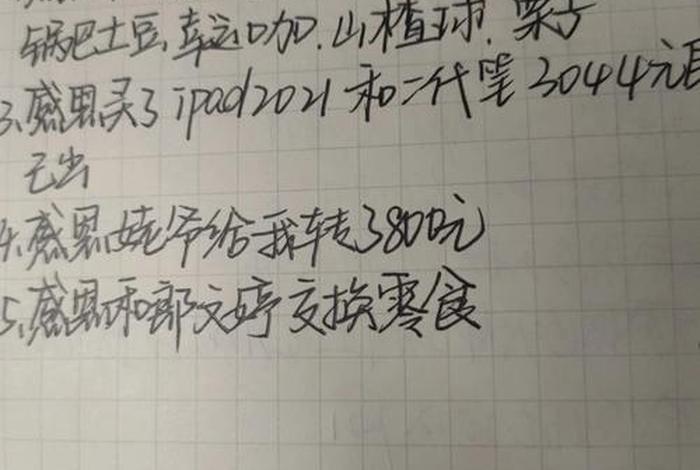 锅巴土豆,幸运咖.山楂球.栗子
3.感恩买了ipad2021和二代笔3044元
已出
4.感恩姥爷给我转3800元
5.感恩和郎文婷交换零食